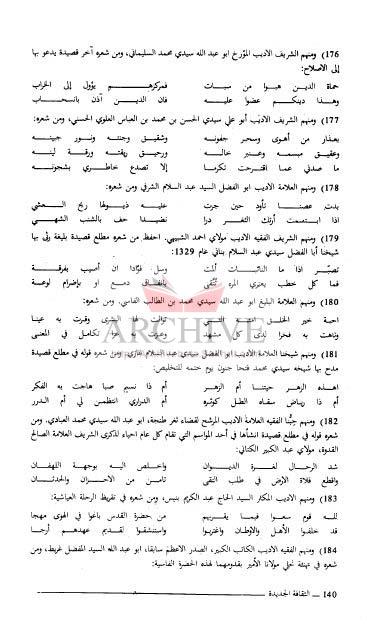 176) ومنهم الشريف الاديب المؤرخ ابو عبد الله سيدي محمد السليماني، ومن شعره آخر قصيدة يدعو بها
إلى الاصلاح:
حماة الدين هبوا من سبات فمركزهم يؤول إلى الخراب
وهذا دينكم عضوا عليه فان الدين آذن بانسحاب
177) ومنهم الشريف الاديب أبو علي سيدي الحسن بن محمد بن العباس العلوي الحسني، ومن شعره:
بعذار من أهوى وسحر جفونه وشقيق وجنته ونور جبينه
وعقيق مبسمه وعنبر خاله ورحيق ريقته ورقة لينه
ما صدني عما اقترحت تكرما إلا تصدع خاطري بشجونه
178) ومنهم العلامة الاديب ابو الفضل السيد عبد السلام الشرفي ومن شعره:
بدت غصنا تأود حين جرت عليه ذيولها ريح العشي
اذا ابتسمت أرتك الثغر درا نضيدا حف بالشنب الشهي
179) ومنهم الشريف الفقيه الاديب مولاي احمد الشبيهي. احفظ من شعره مطلع قصيدة بليغة رثى بها
شيخنا أبا الفضل سيدي عبد السلام بناني عام 1329:
تصبّر اذا ما النائبات ألمت وسل فؤادا ان أصيب بفرقة
فما كل خطب يعتري المرء يتقى دمع او بإضرام لوعة
180) ومنهم العلامة البليغ ابو عبد الله سيدي محمد بن الطالب الفاسي. ومن شعره:
احمة خير الخلق التي توالت لها البشرى وقرت به عينا
وتاهت به فخرا لدى كل مشهد تكامل في المعنى
181) ومنهم شيخنا العلامة الاديب ابو الفضل سيدي عبد السلام غازي، ومن شعره قوله في مطلع قصيدة
مدح بها شيخه سيدي محمد فتحا جنون يوم ختمه للتخليص:
اهذه الزهر حيتنا أم الزهر أم ذا نسيم صبا هاجت به الفكر
أم ذا رياض سقاه الطل كوثره أم الدراري انتظمن لي أم الدرر
182) ومنهم حبّنا الفقيه الاديب العلامة الاديب المرشح لقضاء ثغر طنجة، ابو عبد الله سيدي محمد العبادي. ومن
شعره قوله في مطلع قصيدة انشأها في أحد المواسم التي تقام كل عام احياء لذكرى الشريف العلامة الصالح
القدوة، مولاي عبد الكبير الكتاني:
شد الرحال لغرة الديوان واخلص اليه بوجهة اللهفان
واقطع فلاة الارض في طلب التقى تامن من الاحزان والحدثان
183) ومنهم الاديب المكثر السيد الحاج عبد الكريم بنيس، ومن شعره في تقريظ الرحلة العياشية:
لله قوم سعوا فيما يقربهم من حضرة القدس باعوا في الهوى مهجا
قد خلفوا الأهل والاوطان واغتربوا واستنشقوا لقديم عهدهم أرجا
184) ومنهم الفقيه الاديب الكاتب الكبير، الصدر الاعظم سابقا، ابو عبد الله السيد المفضل غريط، ومن
شعره في تهنئة نجلي مولانا الأمير بقدومهما لهذه الحضرة الفاسية:
140 — الثقافة الجديدة
ARCHIVE